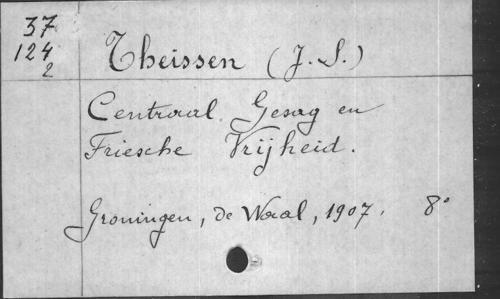 37
124
2
Theissen (J. S.)
Centraal Gesag en
Friesche Vrijheid.
Groningen, de Waal, 1907. 8°